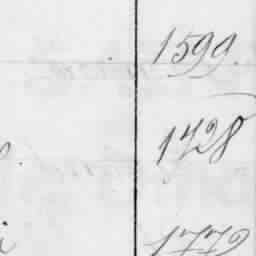 1599.
1728
1779